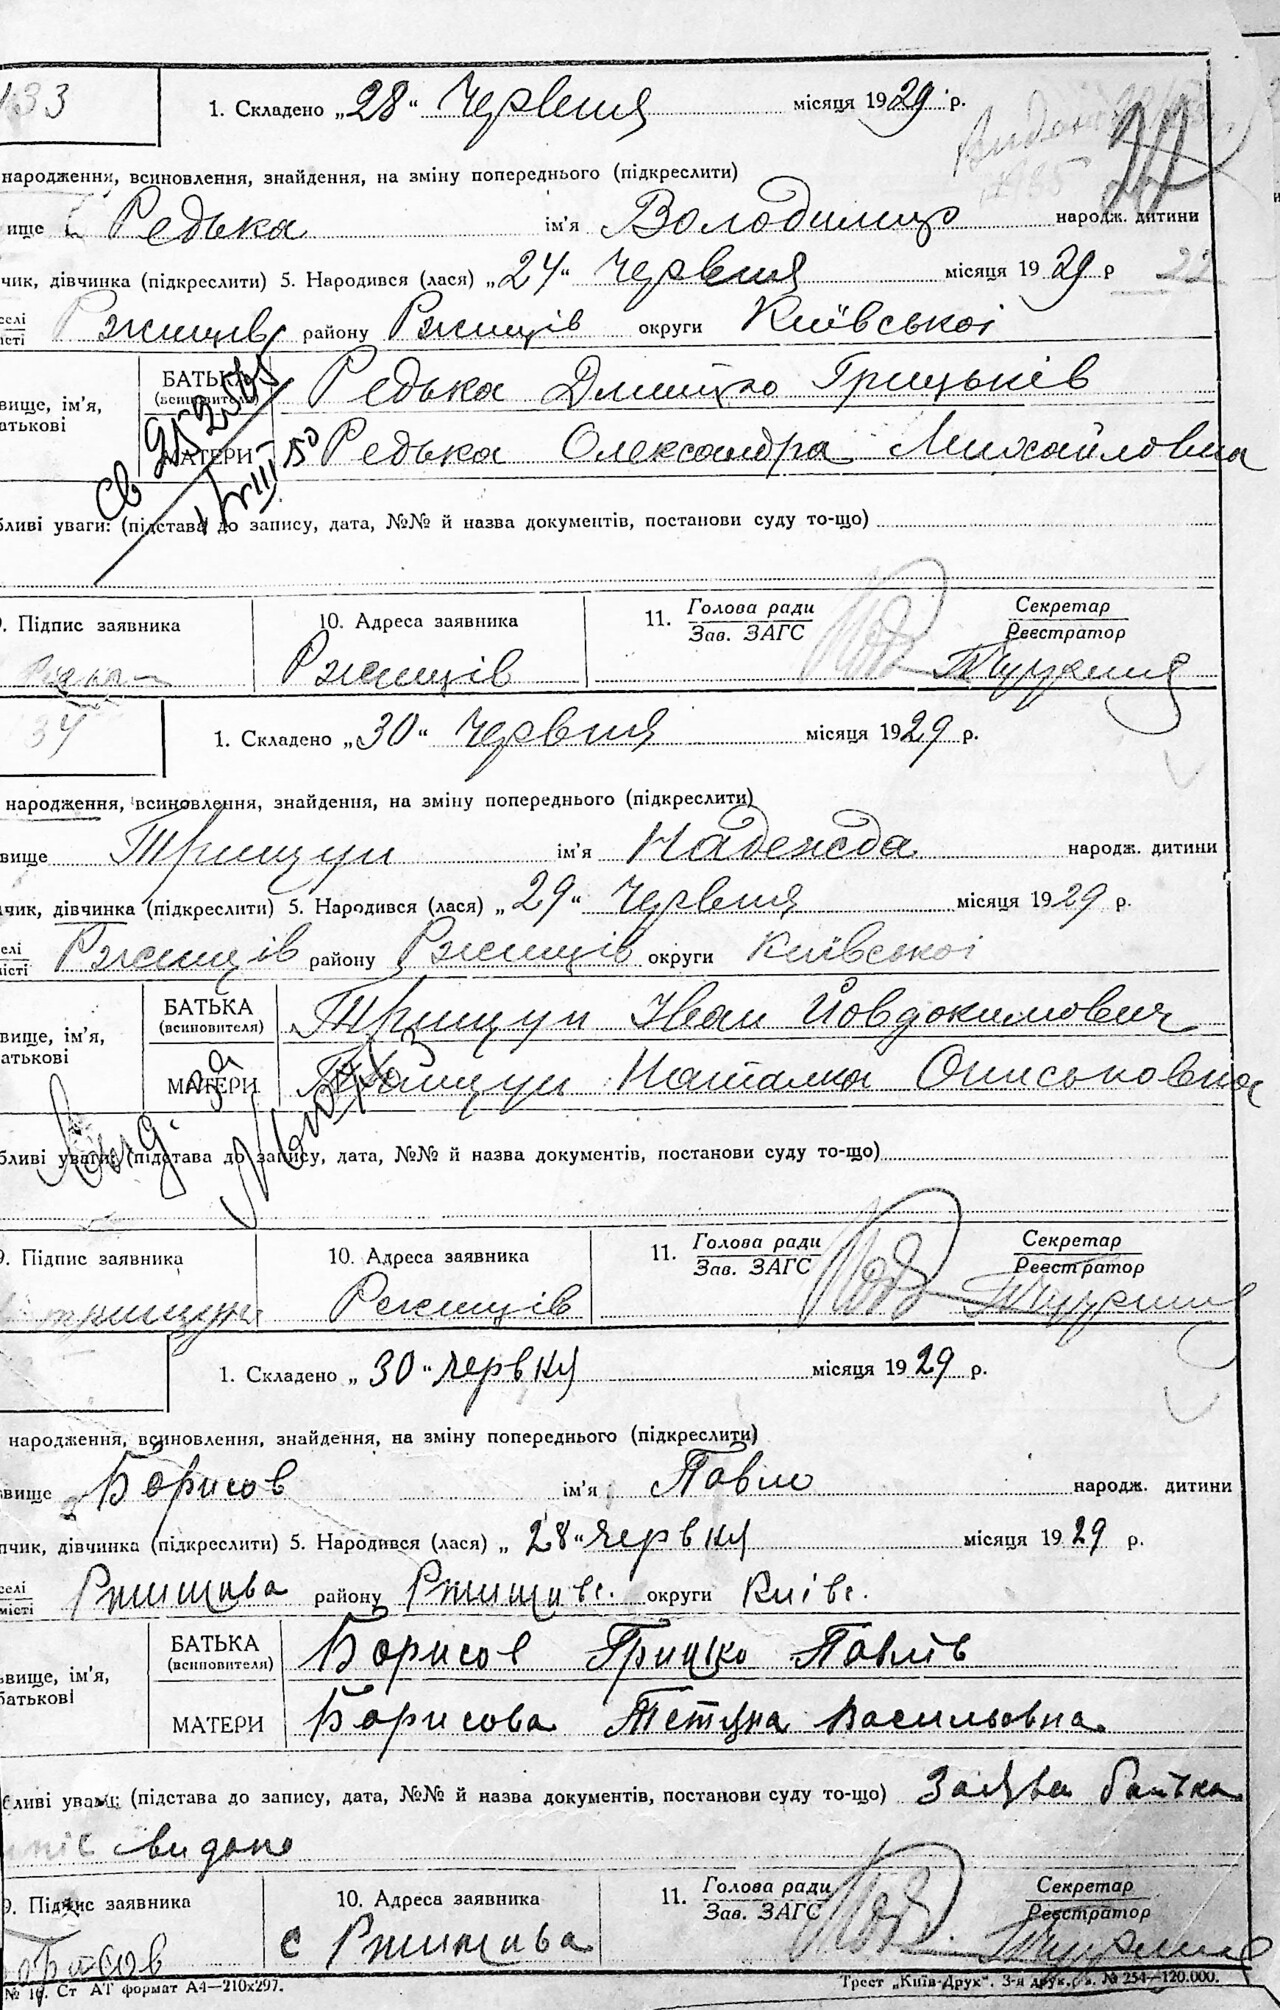 133
1. Складено „28" Червня місяця 1929 р.
народження, всиновлення, знайдення, на зміну попереднього (підкреслити)
ище Редька ім'я Володимир народж. дитини
чик, дівчинка (підкреслити) 5. Народився (лася) „24" Червня місяця 1929 р
селі
місті Ржищів району Ржищів округи Київської
вище, ім'я,
атькові
БАТЬКА
(всиновителя) Редька Дмитро Грицьків
МАТЕРИ Редька Олександра Михайловна
св
VIII 50
бливі уваги: (підстава до запису, дата, №№ й назва документів, постанови суду то-що)
9. Підпис заявника
10. Адреса заявника
Ржищів
11. Голова ради
Зав. ЗАГС
Секретар
Реєстратор
34
1. Складено „30" Червня місяця 1929 р.
народження, всиновлення, знайдення, на зміну попереднього (підкреслити)
вище Трищун ім'я Надежда народж. дитини
чик, дівчинка (підкреслити) 5. Народився (лася) „29" Червня місяця 1929 р.
селі
місті Ржищів району Ржищів округи Київської
вище, ім'я,
атькові
БАТЬКА
(всиновителя) Трищун Іван Йовдокимович
МАТЕРИ Трищун Наталка Ониськовна
бливі уваги: (підстава до запису, дата, №№ й назва документів, постанови суду то-що)
9. Підпис заявника
Трищун
10. Адреса заявника
Ржищів
11. Голова ради
Зав. ЗАГС
Секретар
Реєстратор
1. Складено „30" червня місяця 1929 р.
народження, всиновлення, знайдення, на зміну попереднього (підкреслити)
вище Борисов ім'я Павло народж. дитини
пчик, дівчинка (підкреслити) 5. Народився (лася) „28" червня місяця 1929 р.
селі
місті Ржищева району Ржищивс. округи Київс.
вище, ім'я,
батькові
БАТЬКА
(всиновителя) Борисов Грицько Павлів
МАТЕРИ Борисова Тетяна Васильовна
бливі уваги: (підстава до запису, дата, №№ й назва документів, постанови суду то-що) Заява батька
видано
9. Підпис заявника
Борисов
10. Адреса заявника
с Ржищева
11. Голова ради
Зав. ЗАГС
Секретар
Реєстратор
№ 10. Ст АТ формат А4—210х297.
Трест „Київ-Друк". 3-я друк. з. № 254—120.000.